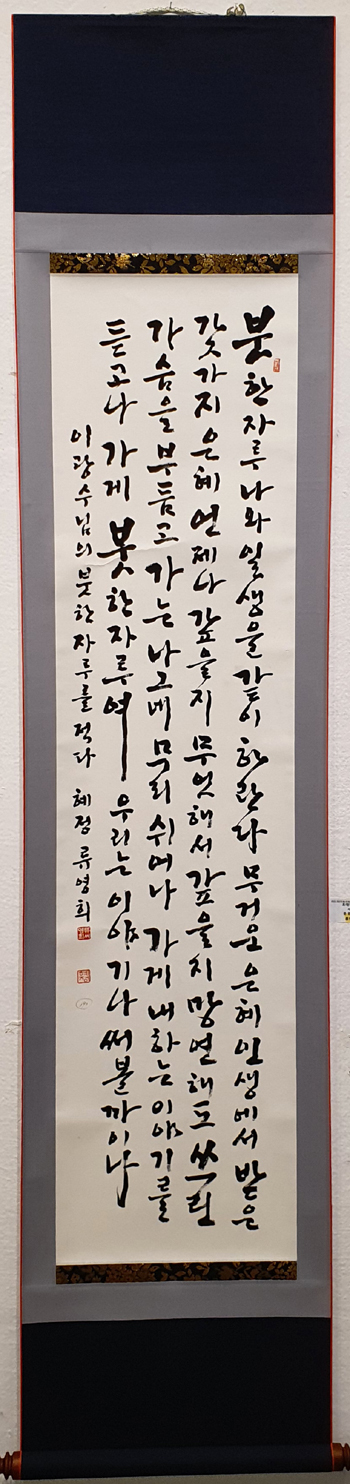 붓한자루나와일생을같이하란다무거운은혜인생에서받은
갖가지은혜언제나갚을지무엇해서갚을지망연해도쓰린
가슴을부듬고가는나그네무리쉬어나가게내하는이야기를
듣고나가게붓한자루여우리는이야기나써볼까이나
이광수님의붓한자루를적다 혜정 류영희